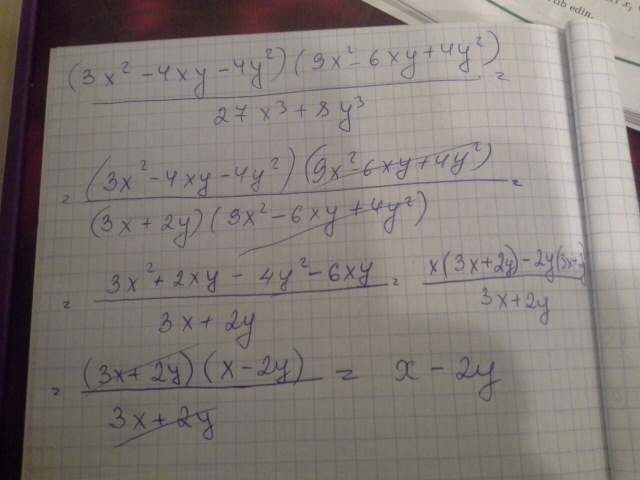 ub edin.
(3x² - 4xy - 4y²)(9x² - 6xy + 4y²)
27x³ + 8y³
=
= (3x² - 4xy - 4y²)(9x² - 6xy + 4y²)
(3x + 2y)(9x² - 6xy + 4y²)
=
= 3x² + 2xy - 4y² - 6xy
3x + 2y
= x(3x + 2y) - 2y(3x + 2
3x + 2y
= (3x + 2y)(x - 2y)
3x + 2y
= x - 2y